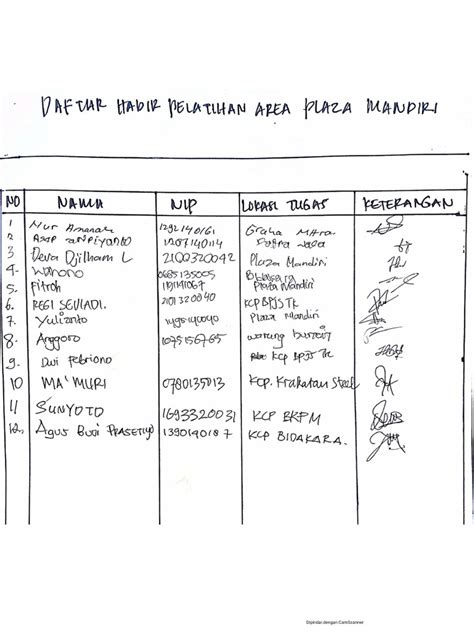 DAFTAR HADIR PELATIHAN AREA PLAZA MANDIRI
NO NAMA NIP LOKASI TUGAS KETERANGAN
1 Nur Amanah 1292140161 Graha Mitra
2 Asep 1207140114
3 Deva Djilham L 2100320042 Plaza Mandiri
4. Wonono 0685135005
5. Fitroh Plaza Mandiri
6. REGI SEVIADI. 2101320040 KCP BPJS TK
7. Yulianto Plaza Mandiri
8. Anggoro 1075156765 warung buncit
9. Dwi Febriono KCP BPJS TK
10 MA'MURI 0780135013 KCP. Krakatau Steel
11 SUNYOTO 1693320031 KCP BKPM
12. Agus Budi PRASETIYO 1390140187 KCP BIDAKARA.
Dipindai dengan CamScanner